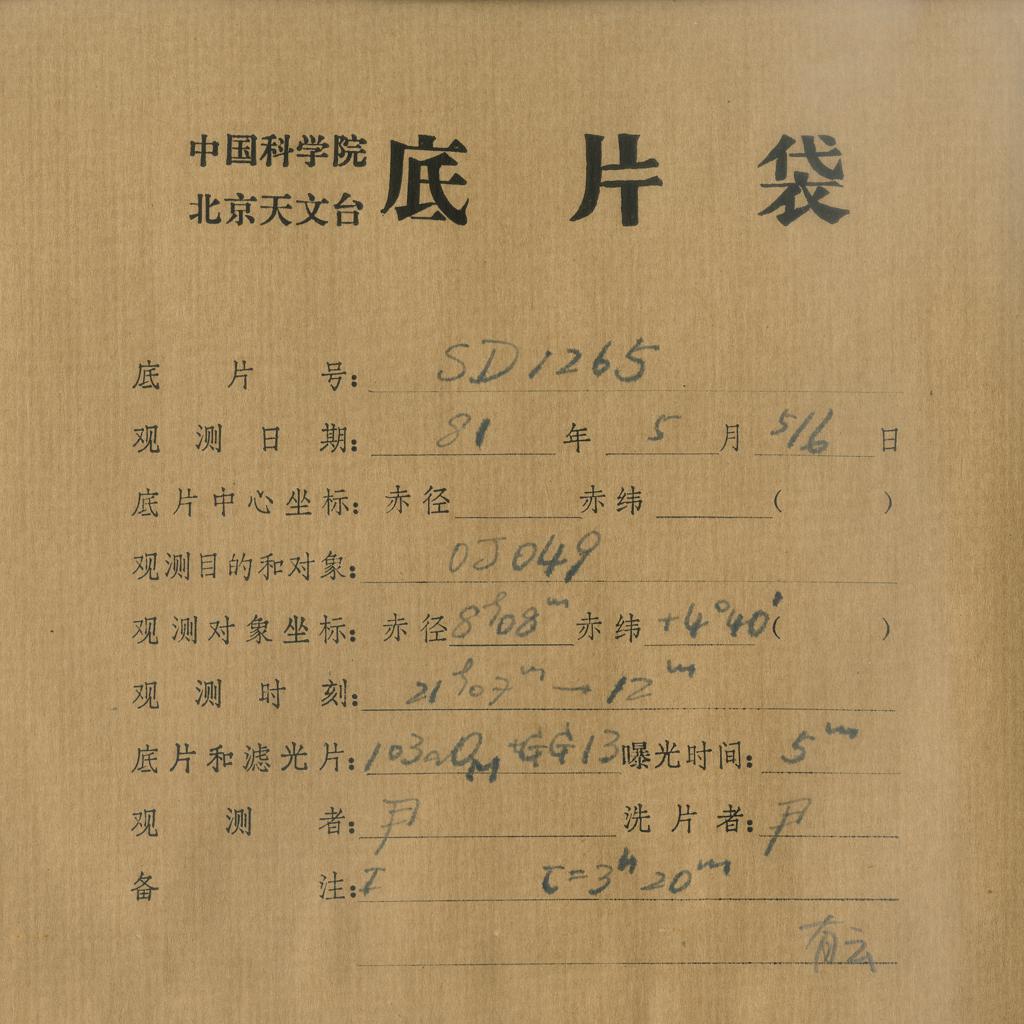 中国科学院
北京天文台 底片袋
底片号: SD1265
观测日期: 81年 5月 5/6日
底片中心坐标: 赤径 赤纬 ( )
观测目的和对象: OJ049
观测对象坐标: 赤径 8h08m 赤纬 +4°40′( )
观测时刻: 21h07m → 12m
底片和滤光片: 103aO +GG13 曝光时间: 5m
观测者: 尹 洗片者: 尹
备注: I τ=3h20m
有云